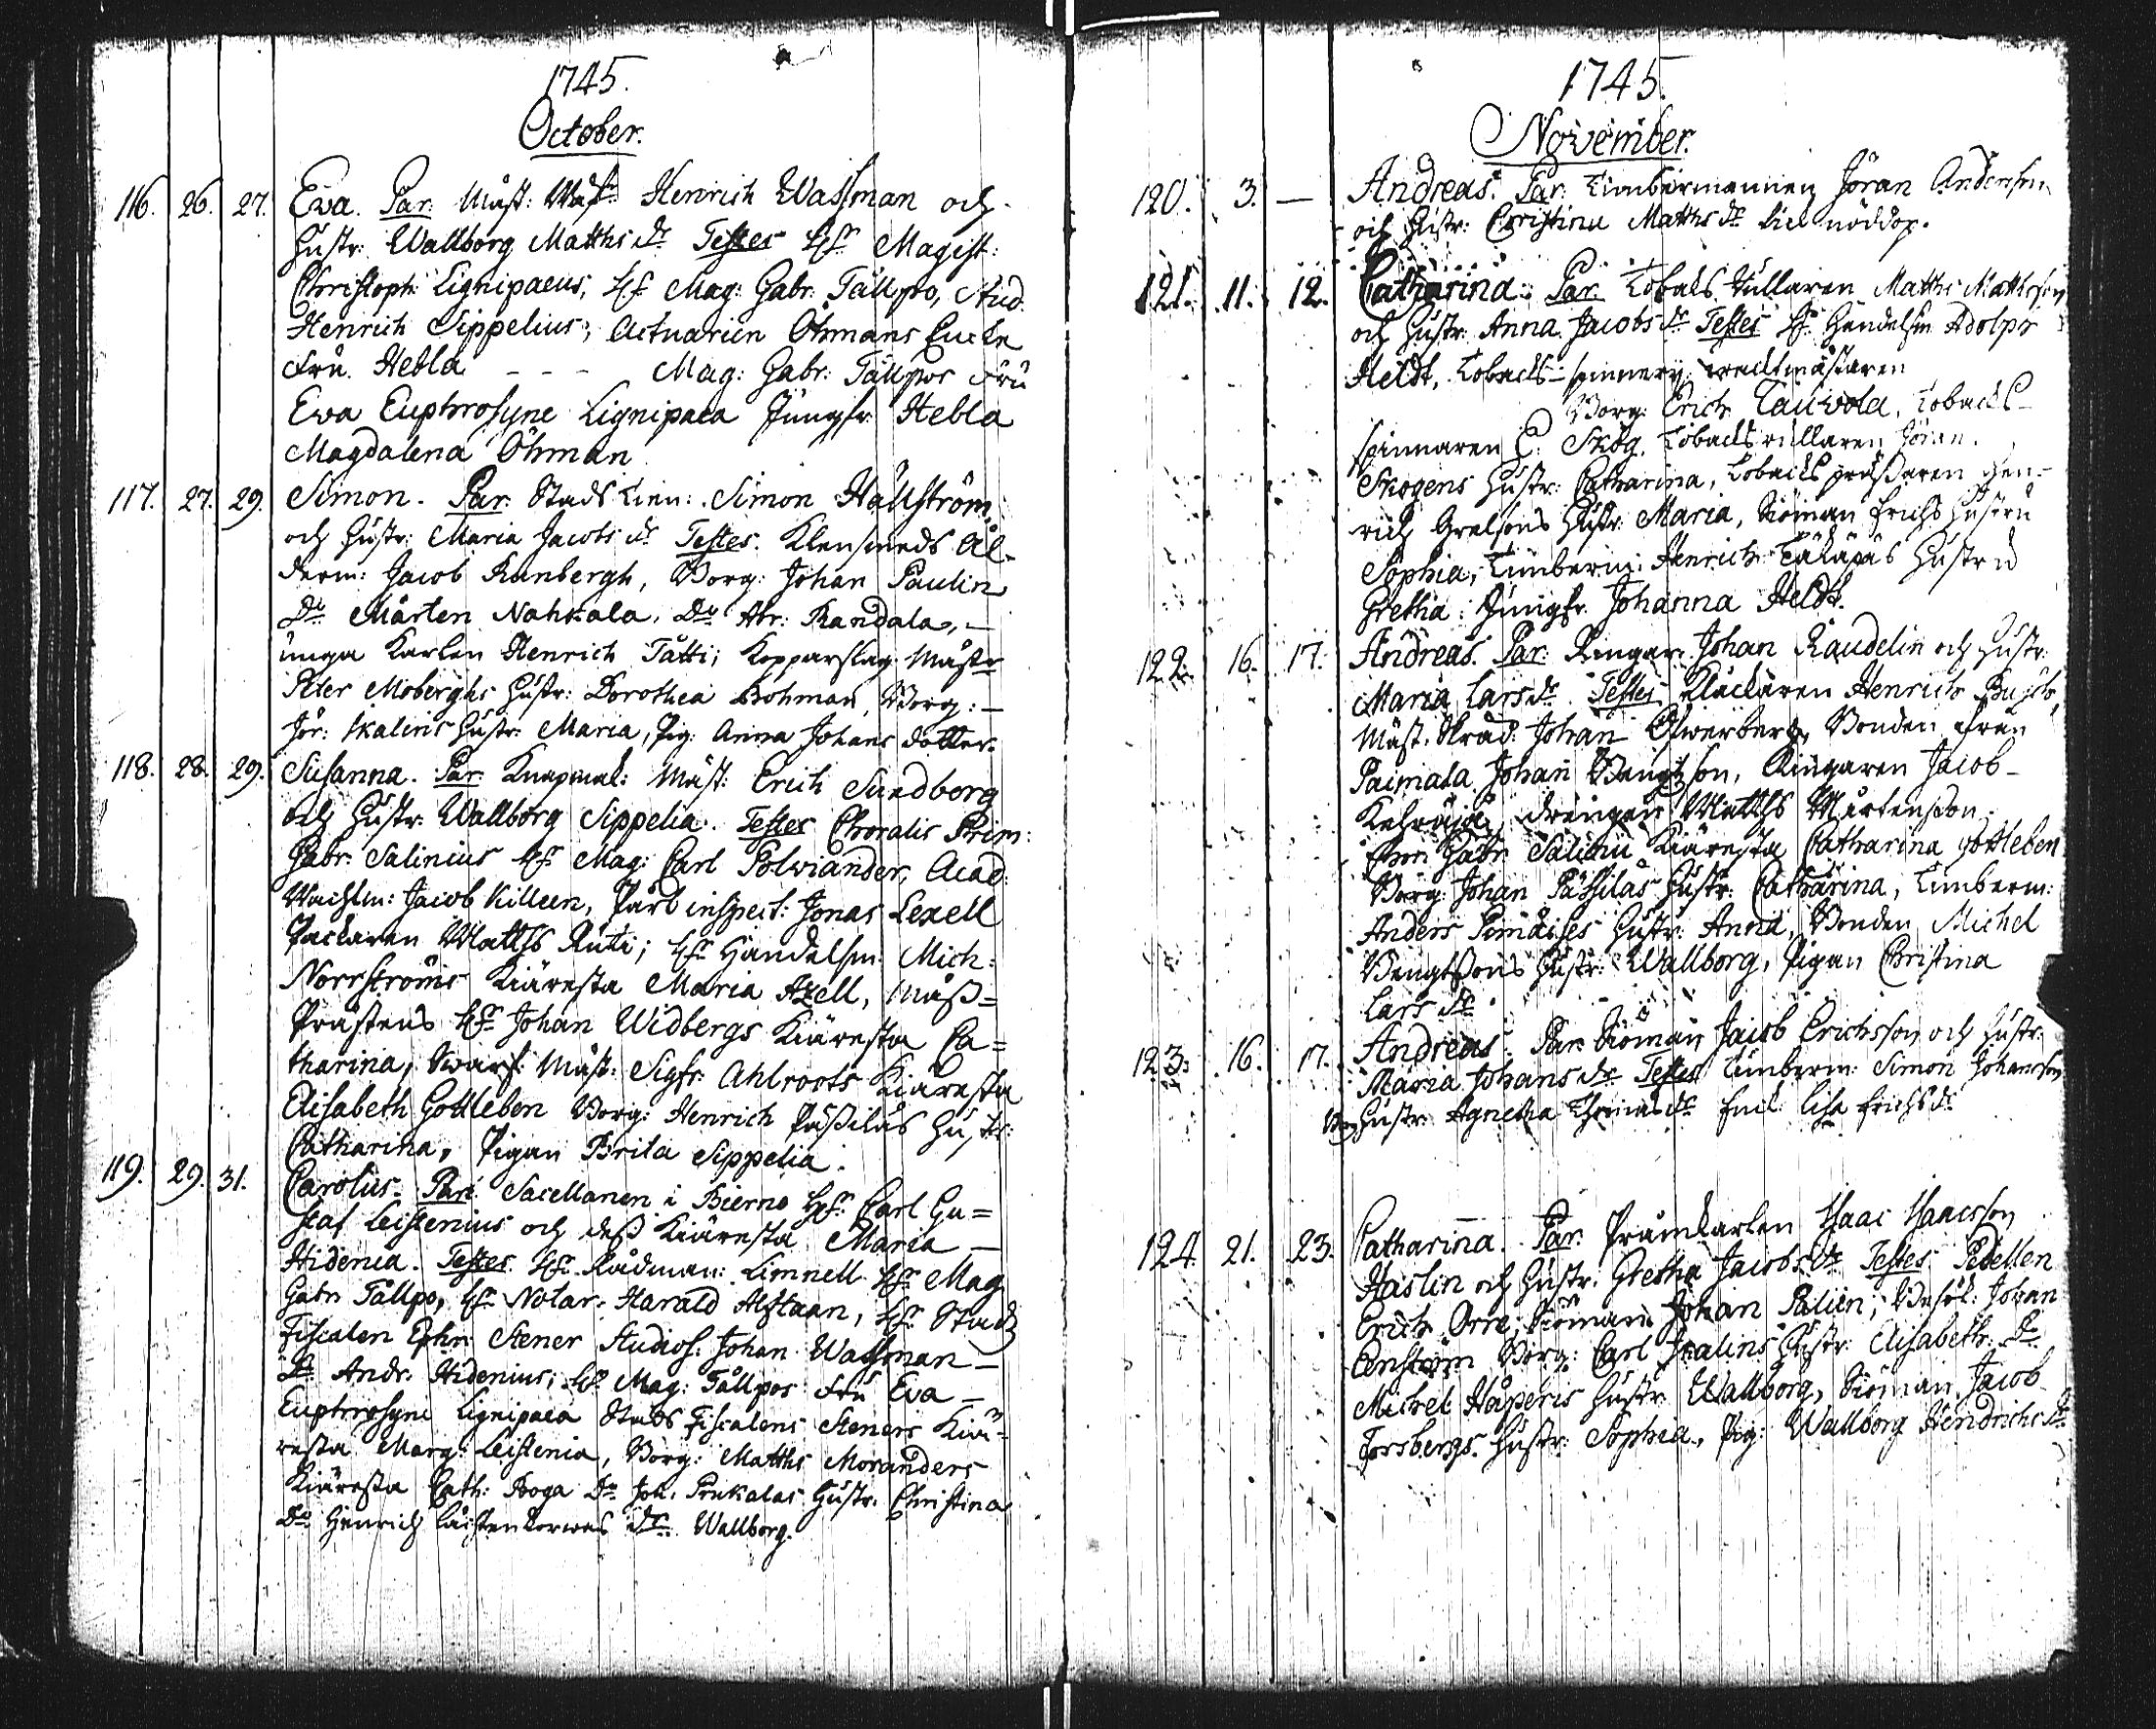 1745.
October.
116. 26. 27. Eva. Par. Mäst: Henrich Wassman och
hustr: Wallborg Matths dr Testes Hr Magist:
Christoph: Lignipaeus, Hr Mag: Gabr: Tållpo, Stud.
Henrich Sippelius, Actuarien Öhmans Encke
Fru Hebla - - - Mag: Gabr: Tållpos Fru
Eva Euphrosyne Lignipaea Jungfr. Hebla
Magdalena Öhman
117. 27. 29. Simon. Par. Stads Simon Hallström,
och hustr: Maria Jacobs dr Testes. Klensmeds Ål-
derm: Jacob Renbergh, Borg: Johan Paulin
Do Mårten Nahkala, Do Abr: Randala, —
unga Karlen Henrich Tåtti; Kopparslag: Mäst
Peter Moberghs hustr: Dorothea Bohman, Borg: —
Jör: Ikalins hustr: Maria, Pig: Anna Johans dotter.
118. 28. 29. Susanna. Par. Knapmak: Mäst: Erich Sundberg
och hustr: Wallborg Sippelia. Testes Choralis Prim:
Gabr: Salinius Hr Mag: Carl Polviander, Acad:
Wachtm: Jacob Killeen, Pärl inspect: Jonas Lexell
Packaren Matths Ruti; Hr Handelsm: Mich:
Norrströms Kiäresta Maria Azell, Mäss=
Prästens Hr Johan Widbergs Kiäresta Ca=
tharina, Swarf: Mäst: Sigfr: Ahlroots Kiäresta
Elisabeth Gottleben Borg: Henrich Passilas hustr:
Catharina, Pigan Brita Sippelia.
119. 29. 31. Carolus. Par. Sacellanen i Bierno Hr Carl Gu=
staf Leistenius och dess Kiäresta Maria —
Hidenia. Testes. Hr Rådman: Limnell Hr Mag
Gabr Tållpo, Hr Notar: Harald Alftaan, Hr Stads
Fiscalen Ephr: Stener Studios: Johan Wassman —
Do Andr: Hidenius; Hr Mag: Tållpos Fru Eva —
Euphrosyne Lignipaea Stads Fiscalens Steners Kiä=
resta Marg: Leistenia, Borg: Matths Moranders
Kiäresta Cath: Boga Do Joh: Penkalas hustr: Christina
Do Henrich dr Wallborg.
1745.
November.
120. 3. — Andreas. Par. Timbermannen Jöran Anderson
och hustr: Christina Matths dr nöddop.
121. 11. 12. Catharina. Par. Tobaks Rullaren Matths Mathsson
och hustr: Anna Jacobs dr Testes Hr Handelsm Adolph
Heldt, Tobacks-spinnery wacktmästaren
Borg: Erich Tauvola, Tobacks-
spinnaren E: Skog, Tobacksrullaren Jöran
Skogens hustr: Catharina, Tobacks prässaren Hen-
rich Grelsons hustr: Maria, Siöman Erichs hustru
Sophia, Timberm: Henrich hustru
Gretha: Jungfr. Johanna Heldt.
122. 16. 17. Andreas. Par. Ringar: Johan Raudelin och hustr:
Maria Lars dr Testes Klåckaren Henrich Busch,
Mäst. Skräd: Johan Öfwerberg, Bonden från
Paimala Johan Bengtson, Ringaren Jacob
drängen Matths Mårtenson
Gabr: Salinii Kiäresta Catharina Gottleben
Borg: Johan Passilas hustr: Catharina, Timberm:
Anders hustr: Anna, Bonden Michel
Bengtsons hustr: Wallborg, Pigan Christina
Lars dr
123. 16. 17. Andreas. Par. Siöman Jacob Erichsson och hustr:
Maria Johans dr Testes Timberm: Simon Johansson
hustr: Agnetha Thomas dr Lisa Erichs dr
124. 21. 23. Catharina. Par. Pråmkarlen Isaac Isaacsson
Haslin och hustr: Gretha Jacobs dr Testes Pedellen
Erich Orre, Siöman Johan Palin, Johan
Enström Borg: Carl Ikalins hustr: Elisabeth: Do
Michel hustr: Wallborg, Siöman Jacob
Forsbergs hustr: Sophia, Pig: Wallborg Hendrichs dr